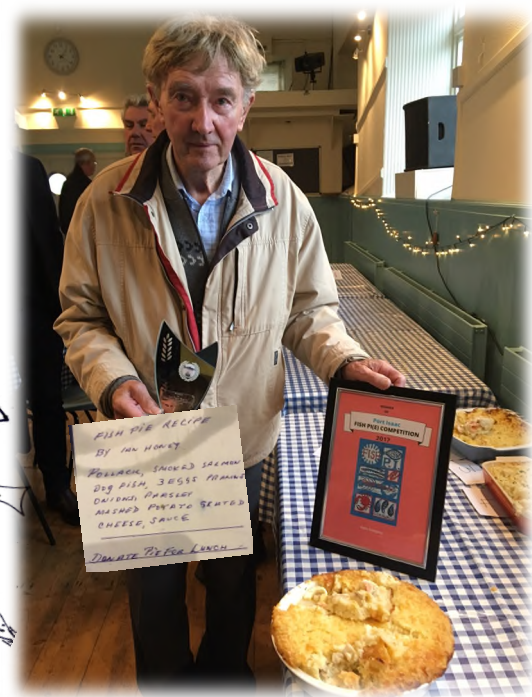 FISH PIE RECIPE
BY IAN HONEY
POLLACK, SMOKED SALMON
DOG FISH, 3 EGGS PRAWNS
ONIONS, PARSLEY
MASHED POTATO GRATED
CHEESE, SAUCE
DONATE PIE FOR LUNCH
Port Isaac
FISH PIE(S) COMPETITION
2017